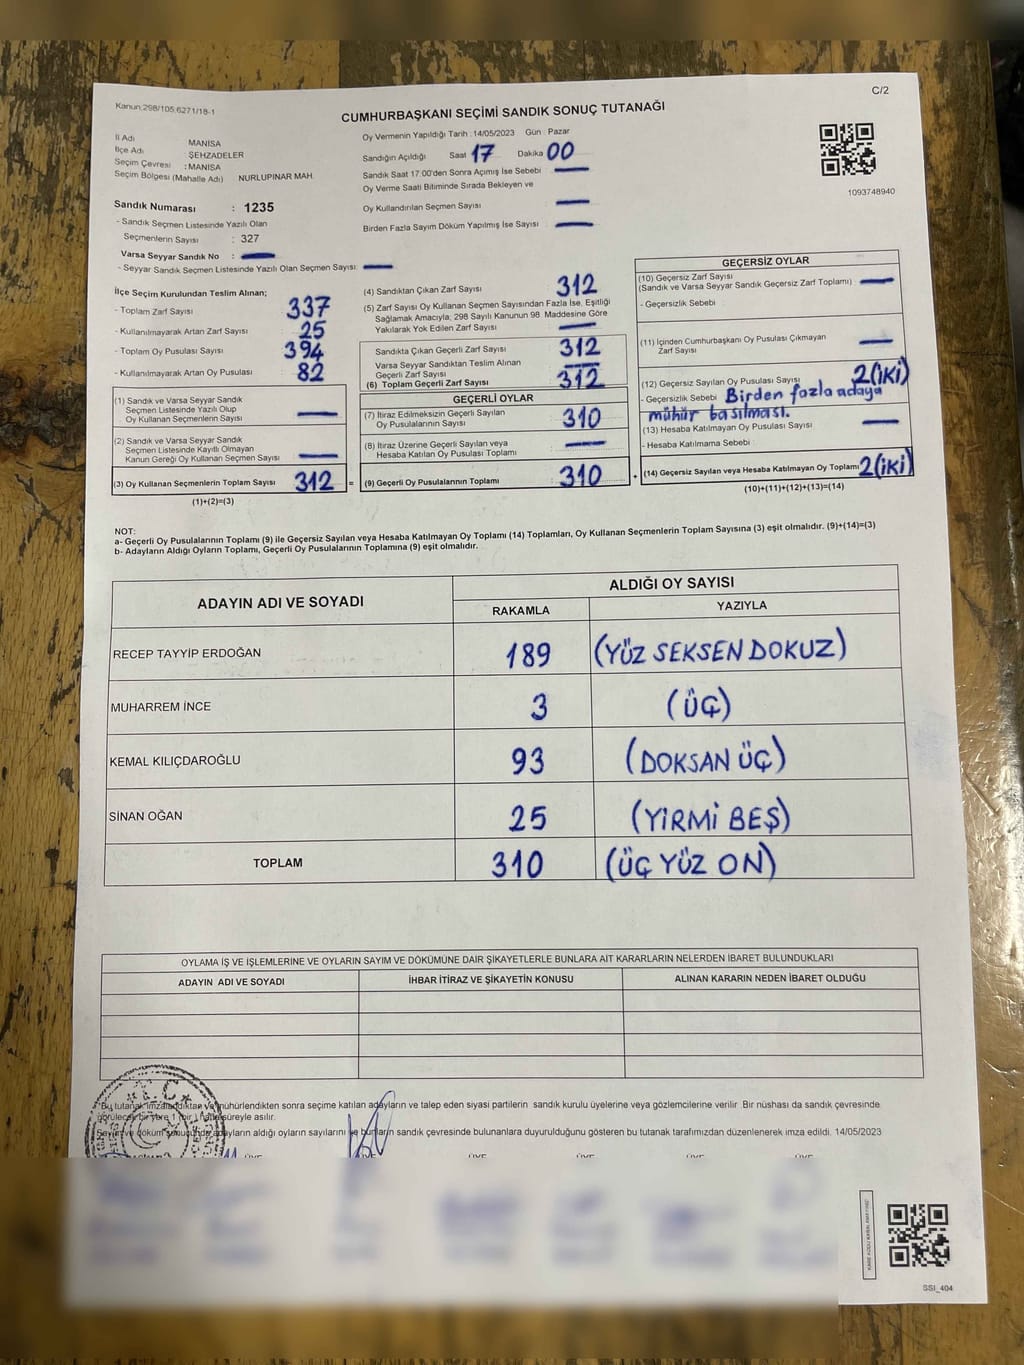 Kanun:298/105,6271/18-1
C/2
CUMHURBAŞKANI SEÇİMİ SANDIK SONUÇ TUTANAĞI
İl Adı MANİSA
İlçe Adı ŞEHZADELER
Seçim Çevresi : MANİSA
Seçim Bölgesi (Mahalle Adı) NURLUPINAR MAH.
Oy Vermenin Yapıldığı Tarih : 14/05/2023 Gün : Pazar
Sandığın Açıldığı Saat 17 Dakika 00
Sandık Saat 17:00'den Sonra Açımış İse Sebebi :
Oy Verme Saati Bitiminde Sırada Bekleyen ve
Oy Kullandırılan Seçmen Sayısı :
Birden Fazla Sayım Döküm Yapılmış İse Sayısı :
1093748940
Sandık Numarası : 1235
- Sandık Seçmen Listesinde Yazılı Olan
Seçmenlerin Sayısı : 327
Varsa Seyyar Sandık No :
- Seyyar Sandık Seçmen Listesinde Yazılı Olan Seçmen Sayısı:
İlçe Seçim Kurulundan Teslim Alınan;
- Toplam Zarf Sayısı : 337
- Kullanılmayarak Artan Zarf Sayısı : 25
- Toplam Oy Pusulası Sayısı : 394
- Kullanılmayarak Artan Oy Pusulası : 82
(1) Sandık ve Varsa Seyyar Sandık
Seçmen Listesinde Yazılı Olup
Oy Kullanan Seçmenlerin Sayısı :
(2) Sandık ve Varsa Seyyar Sandık
Seçmen Listesinde Kayıtlı Olmayan
Kanun Gereği Oy Kullanan Seçmen Sayısı :
(3) Oy Kullanan Seçmenlerin Toplam Sayısı : 312 =
(1)+(2)=(3)
(4) Sandıktan Çıkan Zarf Sayısı : 312
(5) Zarf Sayısı Oy Kullanan Seçmen Sayısından Fazla İse, Eşitliği
Sağlamak Amacıyla; 298 Sayılı Kanunun 98. Maddesine Göre
Yakılarak Yok Edilen Zarf Sayısı :
Sandıkta Çıkan Geçerli Zarf Sayısı : 312
Varsa Seyyar Sandıktan Teslim Alınan
Geçerli Zarf Sayısı :
(6) Toplam Geçerli Zarf Sayısı : 312
GEÇERLİ OYLAR
(7) İtiraz Edilmeksizin Geçerli Sayılan
Oy Pusulalarının Sayısı : 310
(8) İtiraz Üzerine Geçerli Sayılan veya
Hesaba Katılan Oy Pusulası Toplamı :
(9) Geçerli Oy Pusulalarının Toplamı : 310 +
GEÇERSİZ OYLAR
(10) Geçersiz Zarf Sayısı
(Sandık ve Varsa Seyyar Sandık Geçersiz Zarf Toplamı) :
- Geçersizlik Sebebi :
(11) İçinden Cumhurbaşkanı Oy Pusulası Çıkmayan
Zarf Sayısı :
(12) Geçersiz Sayılan Oy Pusulası Sayısı : 2(İKİ)
- Geçersizlik Sebebi : Birden fazla adaya
mühür basılması.
(13) Hesaba Katılmayan Oy Pusulası Sayısı :
- Hesaba Katılmama Sebebi :
(14) Geçersiz Sayılan veya Hesaba Katılmayan Oy Toplamı : 2(İKİ)
(10)+(11)+(12)+(13)=(14)
NOT:
a- Geçerli Oy Pusulalarının Toplamı (9) ile Geçersiz Sayılan veya Hesaba Katılmayan Oy Toplamı (14) Toplamları, Oy Kullanan Seçmenlerin Toplam Sayısına (3) eşit olmalıdır. (9)+(14)=(3)
b- Adayların Aldığı Oyların Toplamı, Geçerli Oy Pusulalarının Toplamına (9) eşit olmalıdır.
ADAYIN ADI VE SOYADI ALDIĞI OY SAYISI
RAKAMLA YAZIYLA
RECEP TAYYİP ERDOĞAN 189 (YÜZ SEKSEN DOKUZ)
MUHARREM İNCE 3 (ÜÇ)
KEMAL KILIÇDAROĞLU 93 (DOKSAN ÜÇ)
SİNAN OĞAN 25 (YİRMİ BEŞ)
TOPLAM 310 (ÜÇ YÜZ ON)
OYLAMA İŞ VE İŞLEMLERİNE VE OYLARIN SAYIM VE DÖKÜMÜNE DAİR ŞİKAYETLERLE BUNLARA AİT KARARLARIN NELERDEN İBARET BULUNDUKLARI
ADAYIN ADI VE SOYADI İHBAR İTİRAZ VE ŞİKAYETİN KONUSU ALINAN KARARIN NEDEN İBARET OLDUĞU
Bu tutanak imzalandıktan ve mühürlendikten sonra seçime katılan adayların ve talep eden siyasi partilerin sandık kurulu üyelerine veya gözlemcilerine verilir. Bir nüshası da sandık çevresinde
süreyle asılır.
adayların aldığı oyların sayılarını ve bunların sandık çevresinde bulunanlara duyurulduğunu gösteren bu tutanak tarafımızdan düzenlenerek imza edildi. 14/05/2023
T.C.
SSI_404